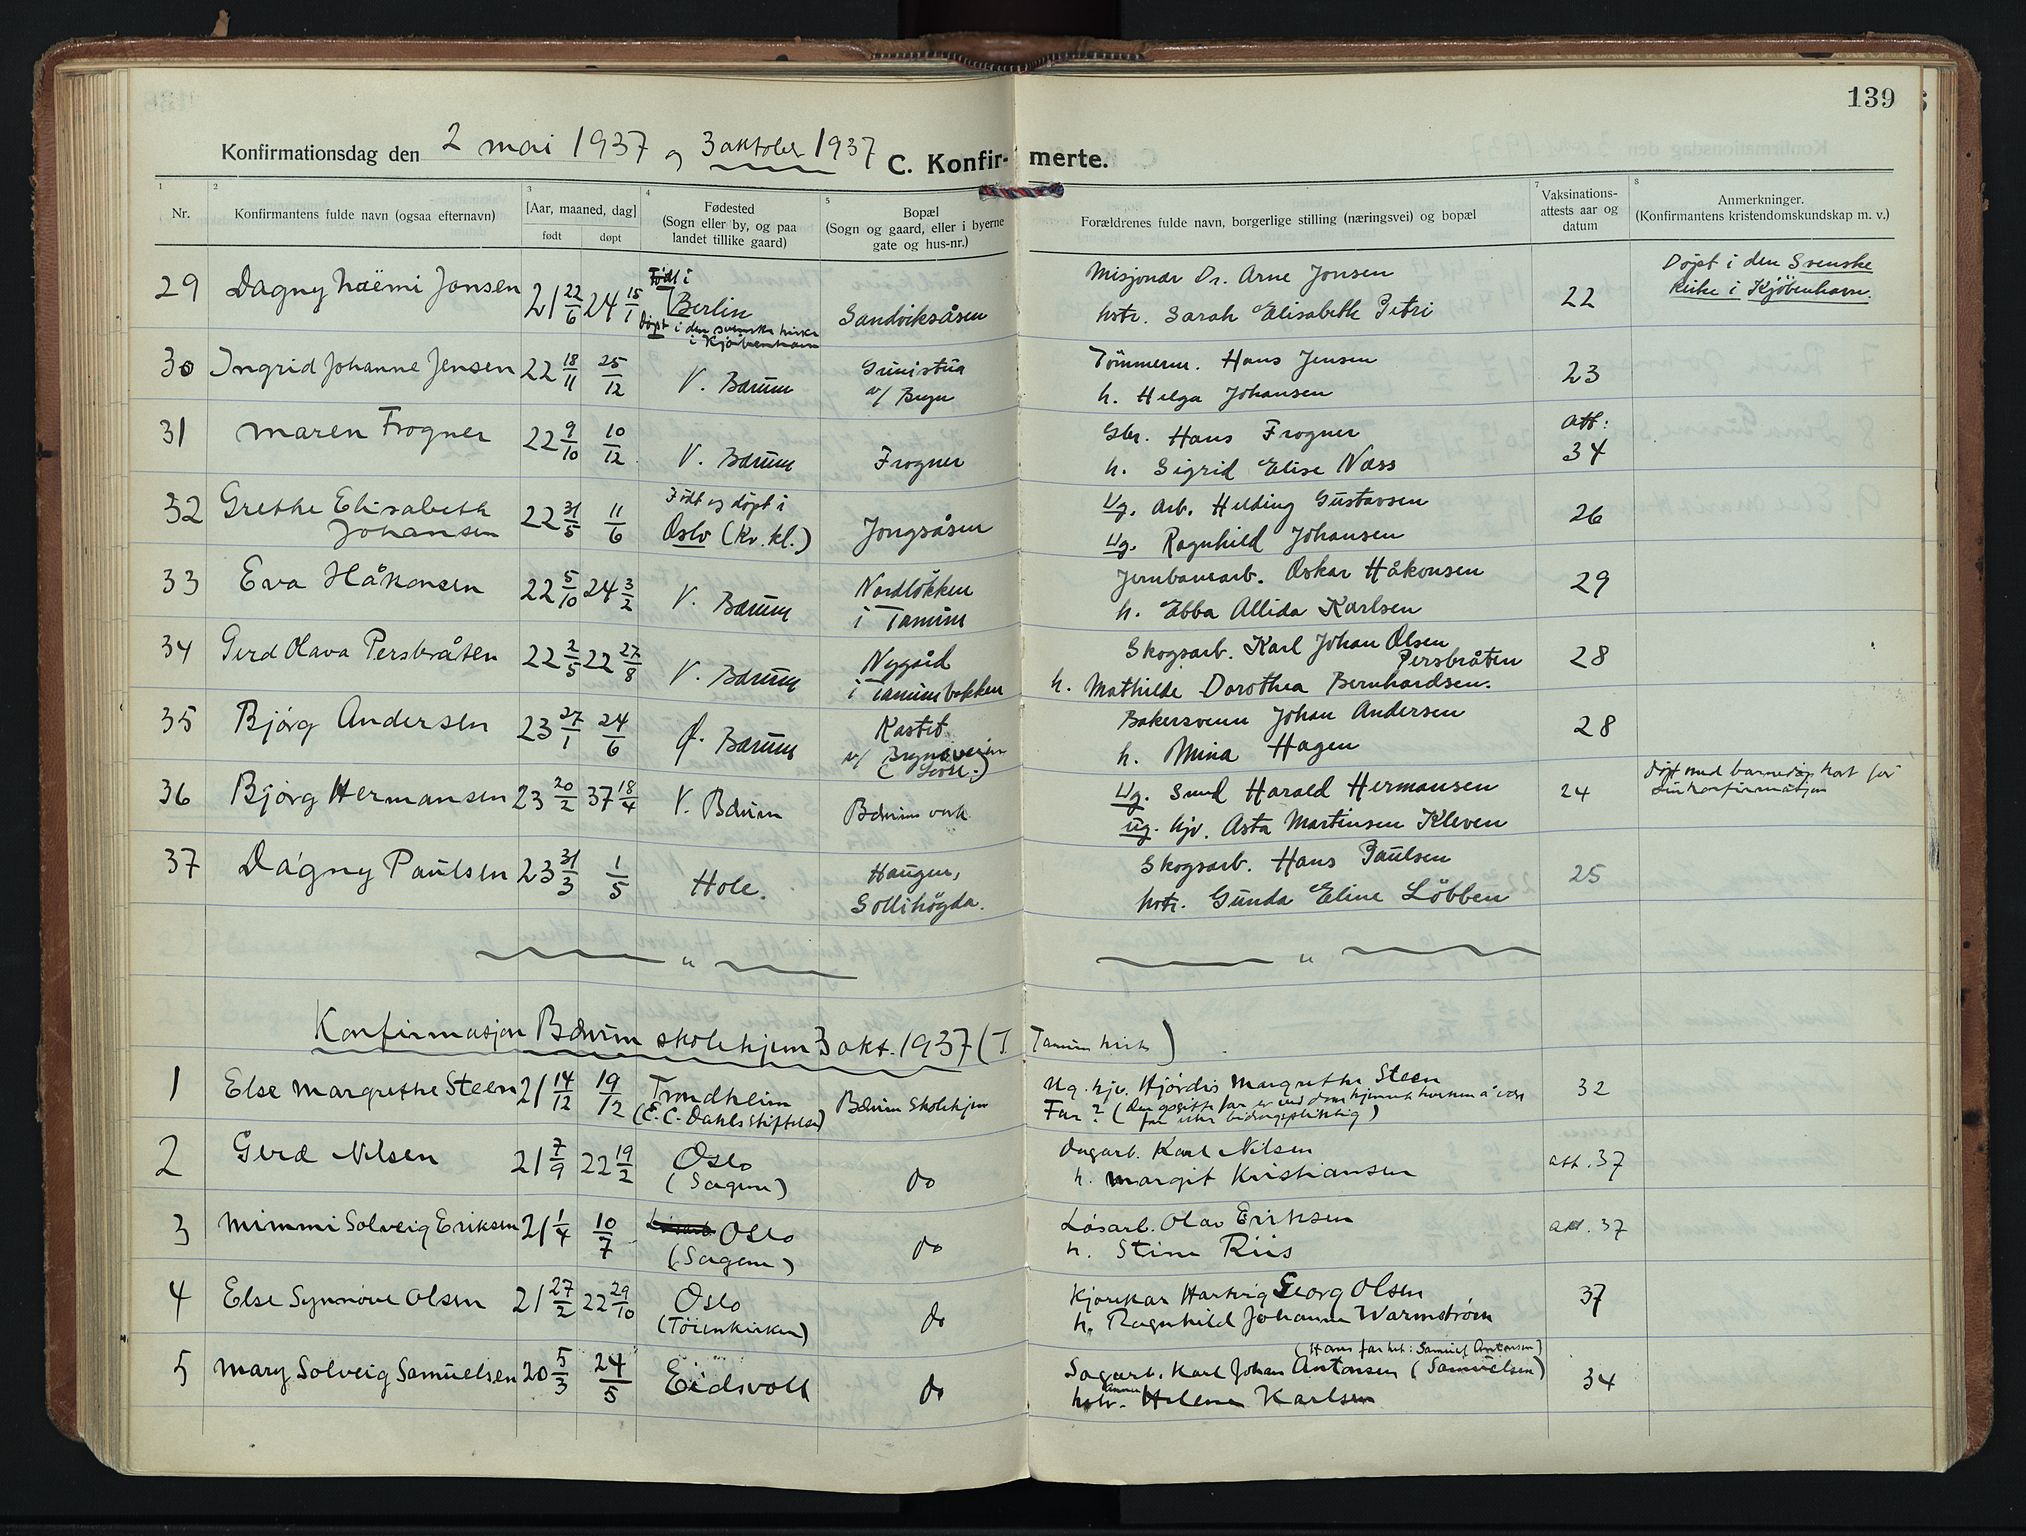 139
Konfirmationsdag den 2 mai 1937 og 3 oktober 1937 C. Konfir- merte.
1 2 3 4 5 7 8
Nr. Konfirmantens fulde navn (ogsaa efternavn) [Aar, maaned, dag] født døpt Fødested (Sogn eller by, og paa landet tillike gaard) Bopæl (Sogn og gaard, eller i byerne gate og hus-nr.) Forældrenes fulde navn, borgerlige stilling (næringsvei) og bopæl Vaksinations-attests aar og datum Anmerkninger. (Konfirmantens kristendomskundskap m. v.)
29 Dagny Naëmi Jonsen 21 22/6 24 15/1 Født i Berlin Døpt i den svenske kirke i Kjöbenhavn Sandviksåsen Misjonær Dr. Arne Jonsen 22 Døpt i den Svenske
hstr. Sarah Elisabeth Petri Kirke i Kjöbenhavn.
30 Ingrid Johanne Jensen 22 18/11 25/12 V. Bærum v/ Bryn Tömmerm. Hans Jensen 23
h. Helga Johansen
31 Maren Frogner 22 9/10 10/12 V. Bærum Frogner Gbr. Hans Frogner att: 34
h. Sigrid Elise Næss
32 Grethe Elisabeth Johansen 22 31/5 11/6 Födt og döpt i Oslo (Kr. kl.) Jongsåsen Ug. Arb. Helding Gustavsen 26
Ug. Ragnhild Johansen
33 Eva Håkonsen 22 5/10 24 3/2 V. Bærum Nordløkken i Tanum Jernbanearb. Oskar Håkonsen 29
h. Ebba Allida Karlsen
34 Gerd Olava Persbråten 22 2/5 22 27/8 V. Bærum Nygård i Tanumbakken Skogsarb. Karl Johan Olsen Persbråten 28
h. Mathilde Dorothea Bernhardsen.
35 Bjørg Andersen 23 27/1 24/6 Ø. Bærum v/ Brynsveien Bakersvenn Johan Andersen 28
h. Mina Hagen
36 Bjørg Hermansen 23 20/2 37 18/4 V. Bærum Bærums verk Ug. Smed Harald Hermansen 24 Døpt med barnedåp kort før
ug. hjv. Asta Martensen Kleven sin konfirmasjon
37 Dagny Paulsen 23 31/3 1/5 Hole. Haugen, Sollihögda. Skogsarb. Hans Paulsen 25
hstr. Gunda Eline Löbben
" "
Konfirmasjon Bærum skolehjem 3 okt. 1937 (I Tanum kirke)
1 Else Margrethe Steen 21 14/12 19/12 Trondheim (E. C. Dahls Stiftelse) Bærum Skolehjem Ug. hjv. Hjördis Margrethe Steen 32
Far? (Den opgitte far er ved dom kjennt hverken å være
far eller bidragspliktig)
2 Gerd Nilsen 21 7/9 22 19/2 Oslo (Sagene) do Karl Nilsen att. 37
h. Margit Kristiansen
3 Mimmi Solveig Eriksen 21 1/4 10/7 Oslo (Sagene) do Løsarb. Olav Eriksen att. 37
h. Stine Riis
4 Else Synnöve Olsen 21 27/2 22 29/10 Oslo (Töienkirken) do Kjørekar Hartvig Georg Olsen 37
h. Ragnhild Johanne Warmström
5 Mary Solveig Samuelsen 20 5/3 24/5 Eidsvoll do (Hans far het: Samuel Antonsen)
Sagarb. Karl Johan Antonsen (Samuelsen) 34
hstr. Helene Karlsen